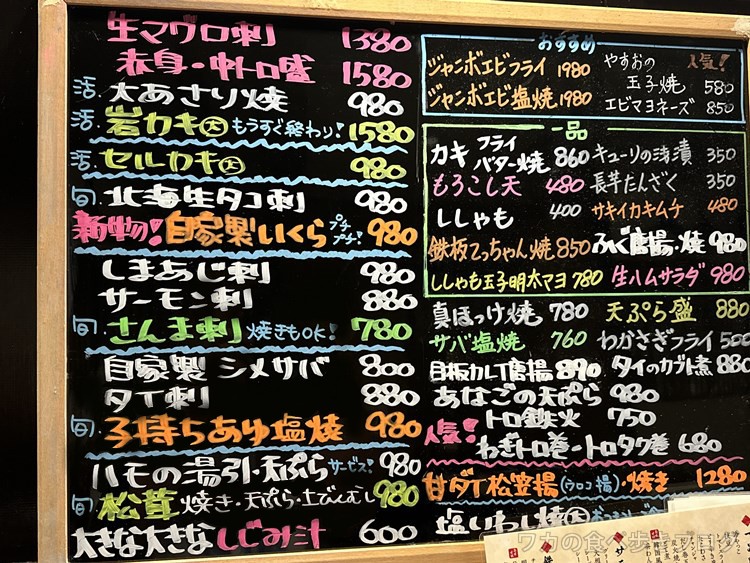 生マグロ刺 1380
赤身・中トロ盛 1580
活 大あさり焼 980
活 岩カキ大 もうすぐ終わり! 1580
活 セルカキ大 980
旬 北海生タコ刺 980
新物! 自家製いくら プチプチ! 980
しまあじ刺 980
サーモン刺 880
旬 さんま刺 焼きもOK! 780
自家製 シメサバ 800
タイ刺 880
旬 子持ちあゆ塩焼 980
ハモの湯引・天ぷら サービス! 980
旬 松茸 焼き・天ぷら・土びんむし 980
大きな大きなしじみ汁 600
おすすめ
ジャンボエビフライ 1980
ジャンボエビ塩焼 1980
やすおの 人気!
玉子焼 580
エビマヨネーズ 850
一品
カキ フライ バター焼 860
もろこし天 480
ししゃも 400
鉄板てっちゃん焼 850
ししゃも玉子明太マヨ 780
キューリの浅漬 350
長芋たんざく 350
サキイカキムチ 480
ふぐ唐揚・焼 980
生ハムサラダ 980
真ほっけ焼 780
天ぷら盛 880
サバ塩焼 760
わかさぎフライ 500
目板カレイ唐揚 890
タイのカブト煮 880
あなごの天ぷら 980
人気! トロ鉄火 750
ねぎトロ巻・トロタク巻 680
甘ダイ松笠揚(ウロコ揚)・焼き 1280
塩いわし焼大
ワカの食べ歩きブログ